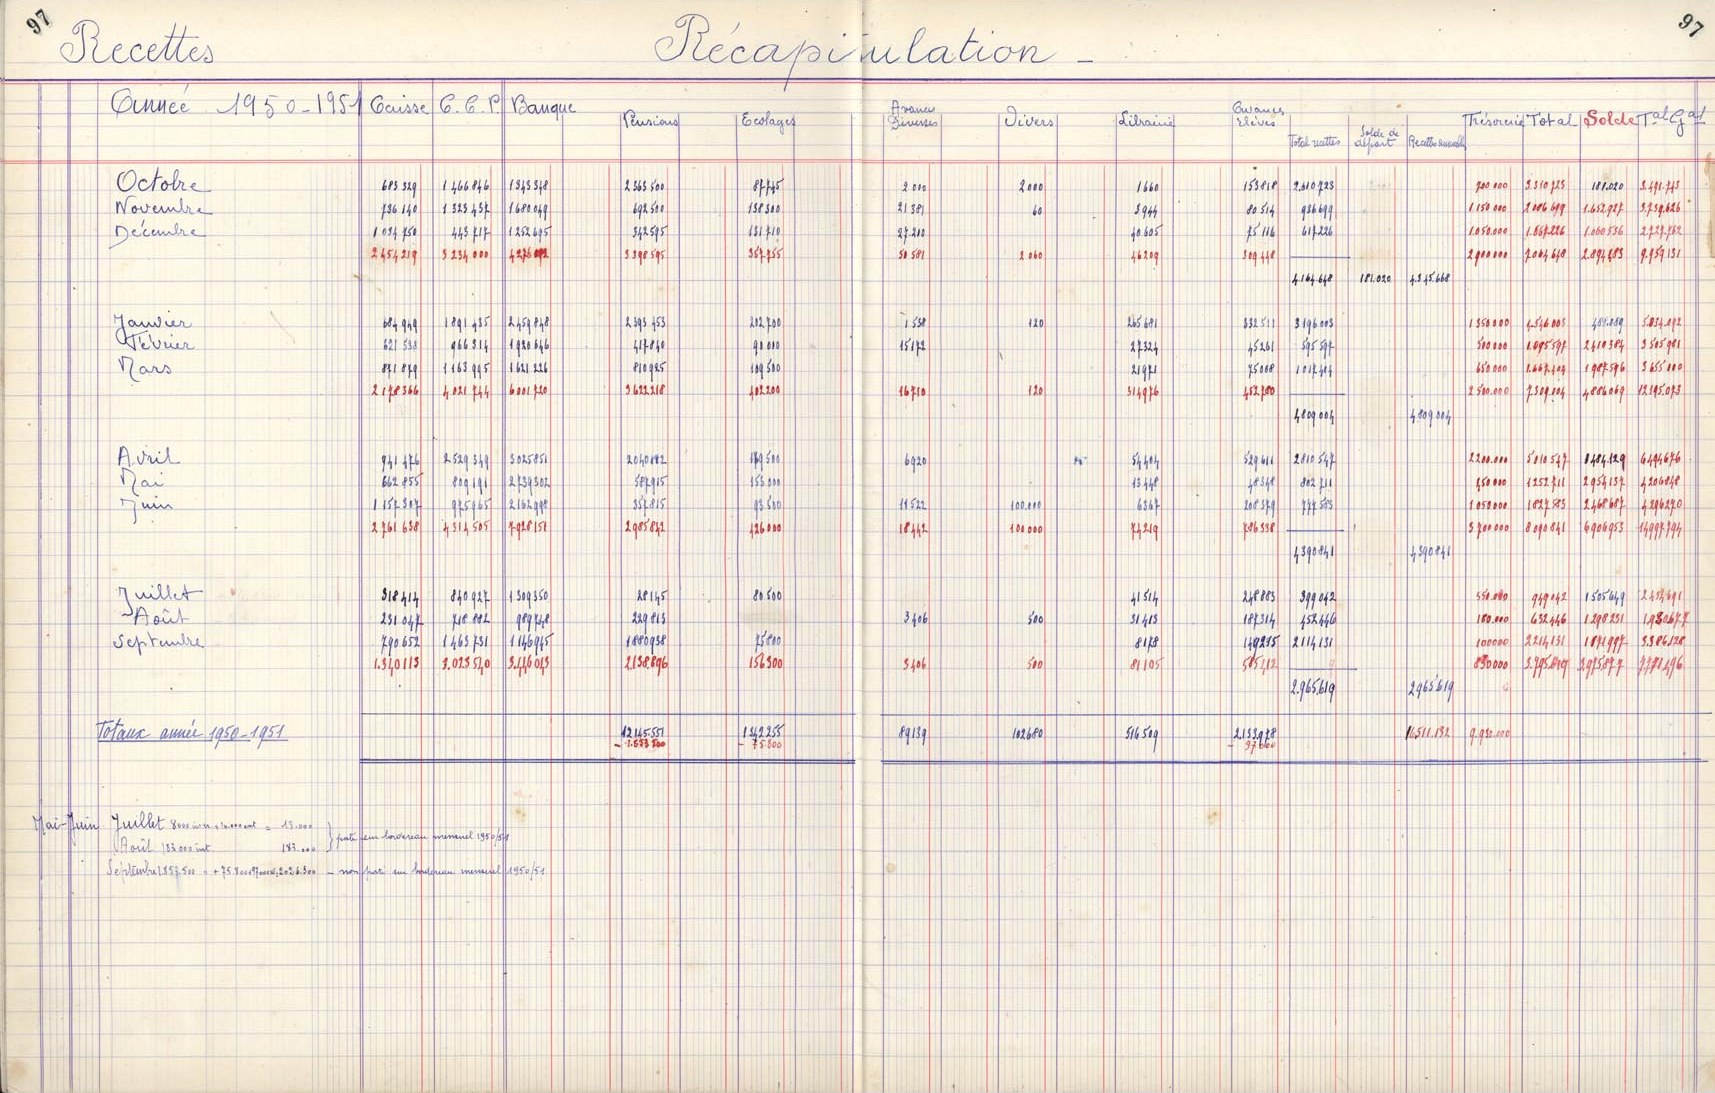 97 97
Recettes Récapitulation -
Année 1950-1951 Caisse C.C.P. Banque Pensions Ecolages Avances Diverses Divers Librairie Avances Elèves Total recettes Solde de départ Recettes Trésorerie Total Solde Tal Gal
Octobre 683 329 1 466 846 1 343 348 2 363 500 87745 2 000 2 000 1660 153 818 2.610 723 700 000 3 310 723 181.020 3.491.743
Novembre 736 140 1 323 437 1 680 049 692 500 138 300 21 381 60 3 944 80 514 936 699 1.150 000 2 086 699 1.652.927 3.739.626
Décembre 1 034 750 443 717 1 252 695 342 595 131 710 27 200 40 605 75 116 617 226 1.050.000
2 454 219 3 234 000 3 398 595 357 755 50 581 2 060 46209 309 448 2 900 000
4.164.648 181.020 4.345.668
Janvier 684 949 1 891 435 2 459 848 2 393 453 202 700 1 538 120 265 681 332 511 3 196 003 1 350 000
Février 621 538 966 314 1 920 646 417 840 90 000 15 172 27 324 45 261 595 597 500 000 1.095 597 2 410 384 3 505 981
Mars 871 879 1 163 995 1 621 226 810 925 109 500 21971 75 008 1 017 404 650 000 1.667.404 1 987 596 3 655 000
2 178 366 4 021 744 6 001 720 3 622 218 402 200 16710 120 314 976 452 780 2 500.000 7 309.004 4 886 069 12 195.073
4 809 004 4 809 004
Avril 941 476 2 529 349 3 025 851 6920 54 404 529 611 2 810 547 2200.000 5 010 547 1 484 129 6 494 676
Mai 662 855 809 191 2 739 302 587 915 153 000 13 448 48 348 802 711 450 000 1 252 711 2 954 137 4 206 848
Juin 1 157 307 975 965 2 162 998 357 815 93 500 11 522 100.000 6 367 208 379 777 583 1 050 000 1 827 583 2 468 687 4 296 270
2 761 638 4 314 505 7 928 151 2 985 842 426 000 18 442 100 000 74 219 786 338 3 700 000 8 090 841 6 906 953 14 997 794
4 390 841 4 390 841
Juillet 318 414 840 927 1 309 350 28 145 80 500 41 514 248 883 399 042 550.000 949 042 1 505 649 2 454 691
Août 231 047 229 813 3 406 500 31 413 187 314 452 446 180.000 632 446 1 298 231
Septembre 790 652 1 463 731 1 880 938 75 800 8 178 149 215 2 114 131 100 000 2 214 131 1 871 997
1.340 113 3.023 540 2.138.896 156 300 3 406 500 81 105 585 412 830 000 3.795.619
2.965.619 2 965 619
Totaux année 1950-1951 12.145.551 1 342.255 89 139 102 680 516 509 2.133.978 16 511.132 9.930.000
- 75.800 - 97 000
Mai-Juin Juillet = 15.000
Août 183 000 int. 183.000 } porté sur bordereau mensuel 1950/51
Septembre - non porté sur bordereau mensuel 1950/51